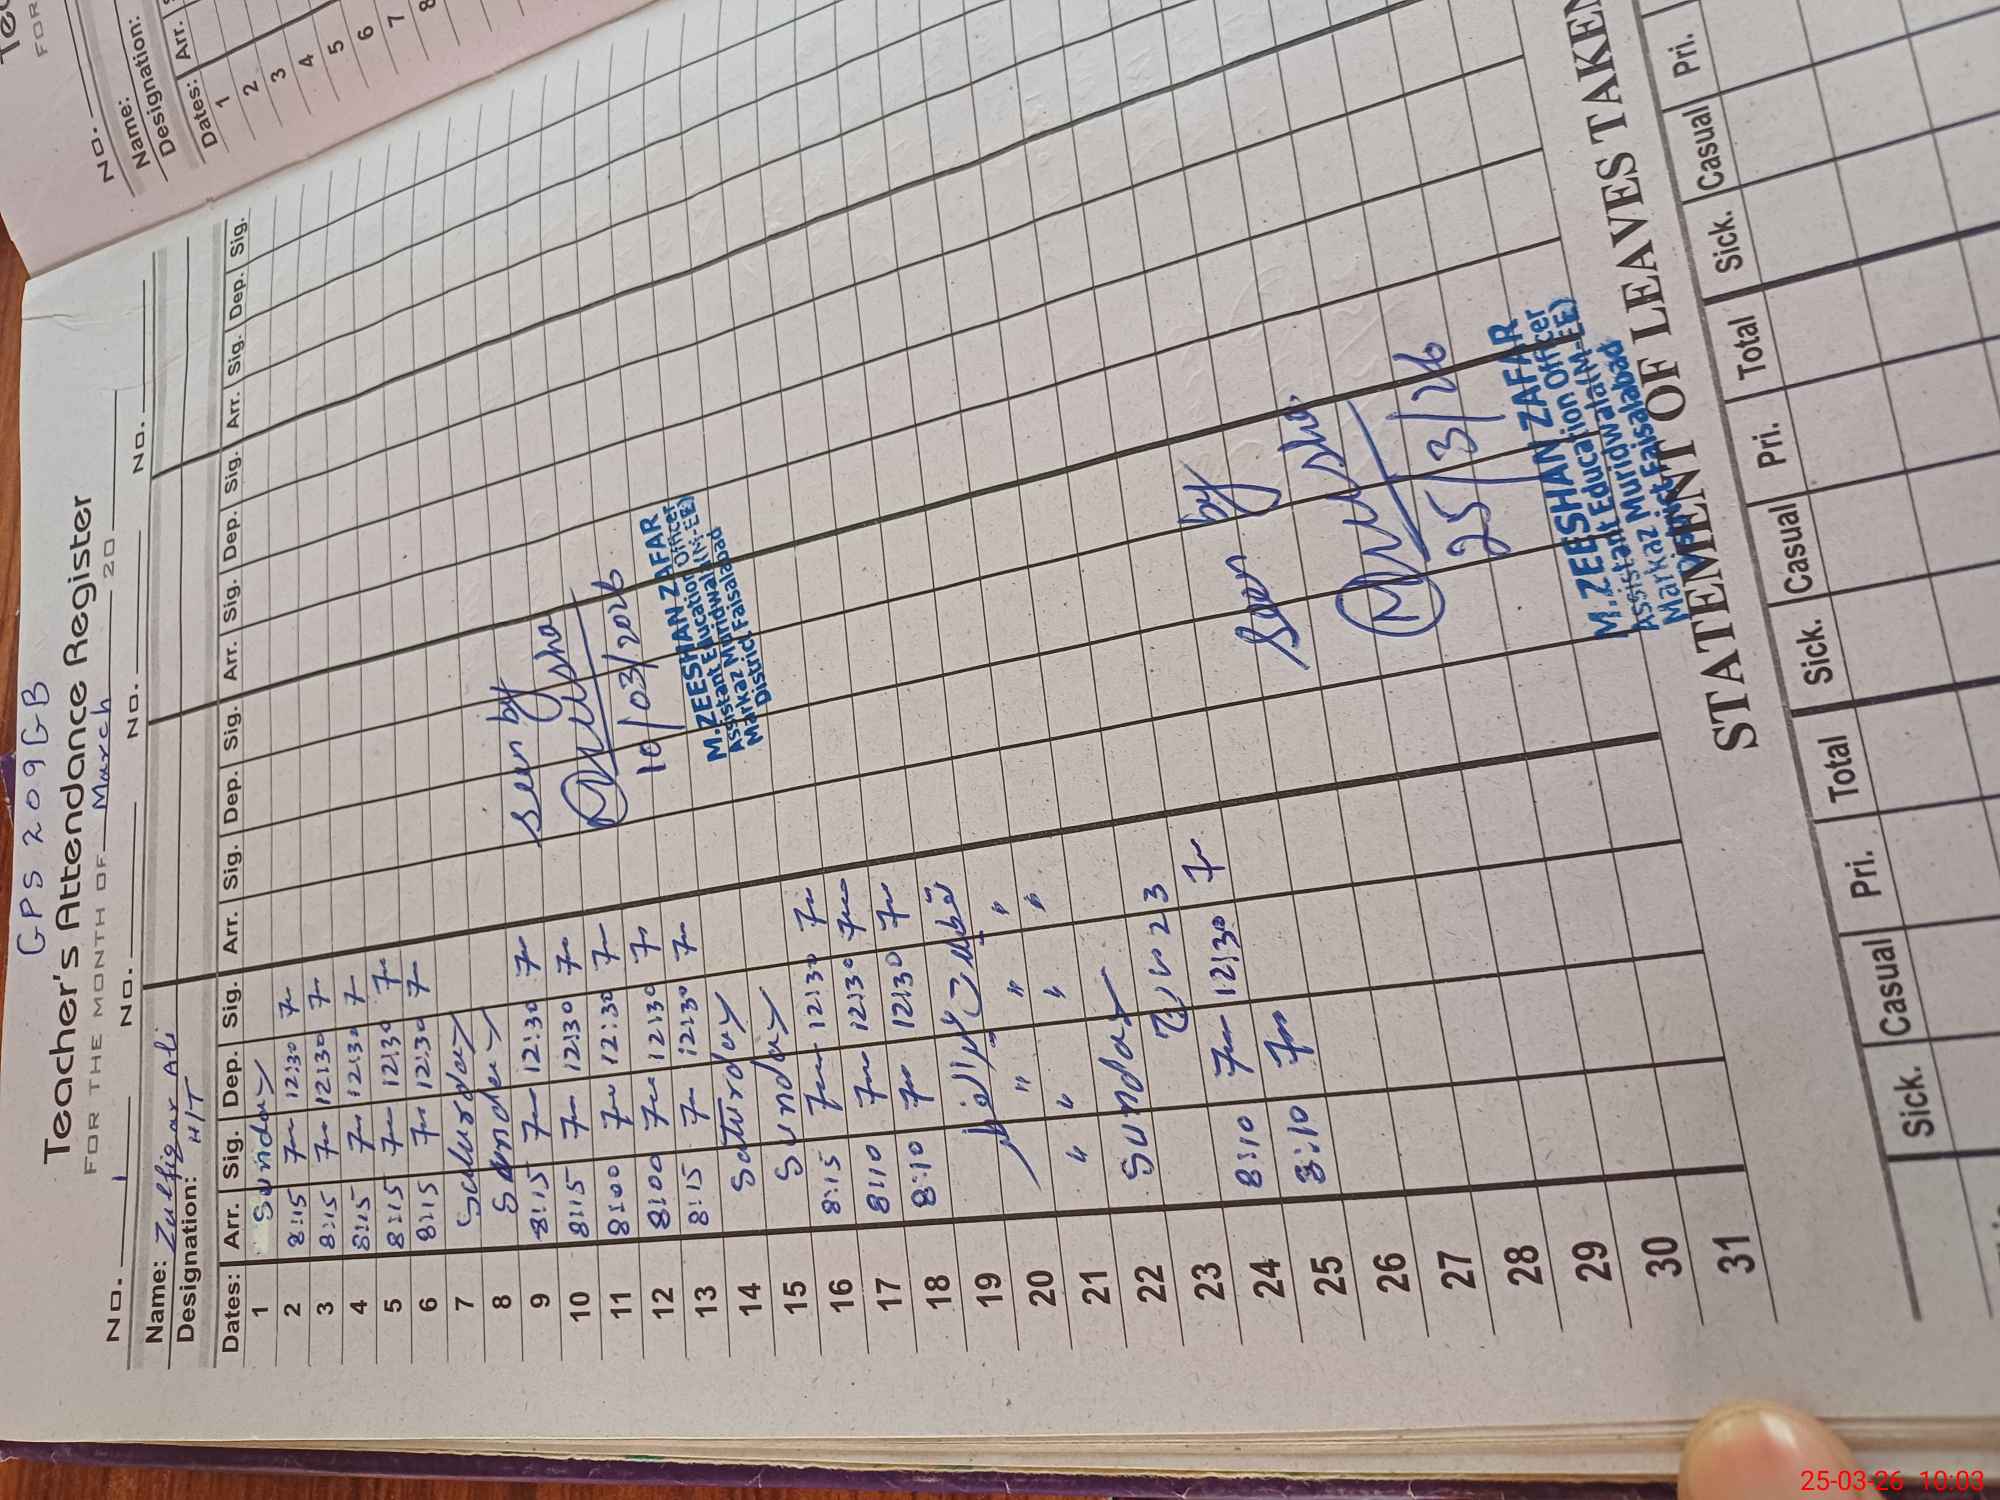 GPS 209GB
Teacher's Attendance Register
FOR THE MONTH OF March 20
No. 1 No. No. No.
Name: Zulfiqar Ali
Designation: H/T
Dates: Arr. Sig. Dep. Sig. Arr. Sig. Dep. Sig. Arr. Sig. Dep. Sig. Arr. Sig. Dep. Sig.
1 Sunday
2 8:15 12:30
3 8:15 12:30
4 8:15 12:30
5 8:15 12:30
6 8:15 12:30
7 Saturday
8 Sunday
9 8:15 12:30
10 8:15 12:30
11 8:00 12:30
12 8:00 12:30
13 8:15 12:30
14 Saturday
15 Sunday
16 8:15 12:30
17 8:10 12:30
18 8:10 12:30
19
20 " " "
21 " " " "
22 Sunday
23 23
24 8:10 12:30
25 8:10
26
27
28
29
30
31
Seen by
10/03/2026
M.ZEESHAN ZAFAR
Assistant Education Officer
Markaz Muridwala(M-EE)
District Faisalabad
Seen by
25/3/26
M.ZEESHAN ZAFAR
Assistant Education Officer
Markaz Muridwala(M-EE)
District Faisalabad
STATEMENT OF LEAVES TAKEN
Sick. Casual Pri. Total Sick. Casual Pri. Total Sick. Casual Pri.
FOR
No.
Name:
Designation:
Dates: Arr.
1
2
3
4
5
6
7
8
25-03-26 10:03